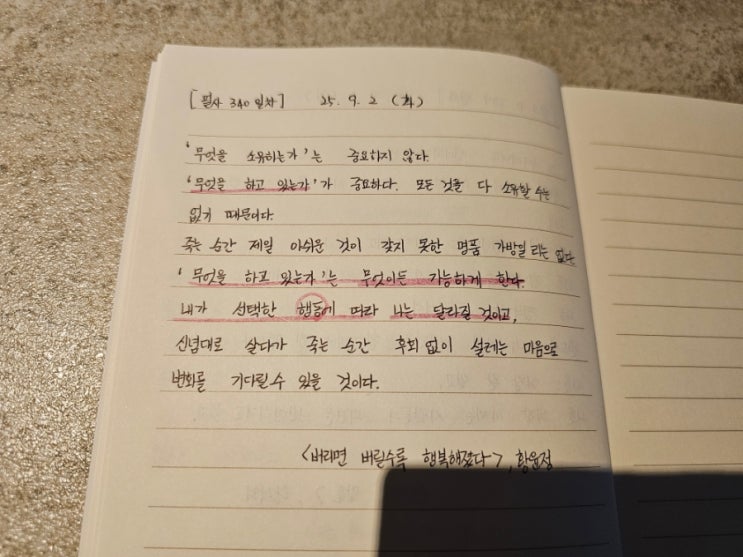 [필사 340일차] 25. 9. 2 (화)
'무엇을 소유하는가'는 중요하지 않다.
'무엇을 하고 있는가'가 중요하다. 모든 것을 다 소유할 수는
없기 때문이다.
죽는 순간 제일 아쉬운 것이 갖지 못한 명품 가방일 리는 없다.
'무엇을 하고 있는가'는 무엇이든 가능하게 한다.
내가 선택한 행동에 따라 나는 달라질 것이고,
신념대로 살다가 죽는 순간 후회 없이 설레는 마음으로
변화를 기다릴 수 있을 것이다.
<버리면 버릴수록 행복해졌다>, 황윤정